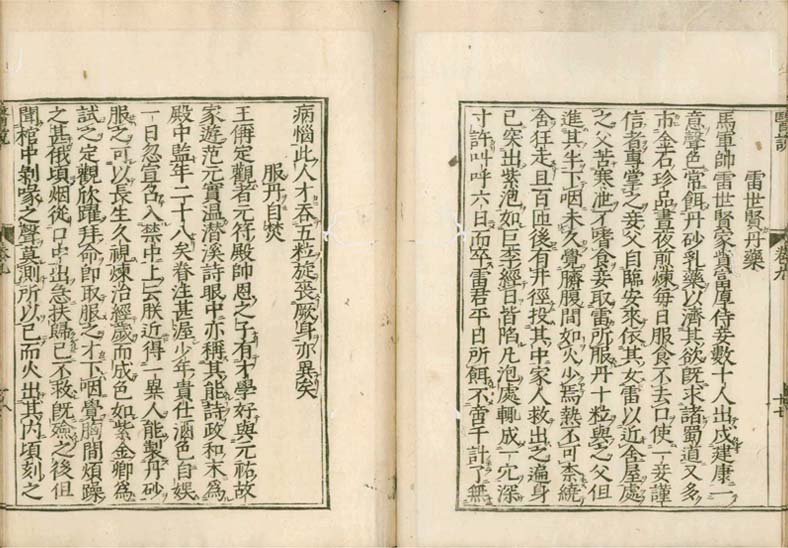 醫說
卷九
十七
雷世賢丹藥
馬軍帥雷世賢家貲富厚侍妾數十人出戍建康一
意聲色常餌丹砂乳藥以濟其欲旣求諸蜀道又多
市金石珍品晝夜煎煉每日服食不去口使一妾謹
信者專掌之妾父自臨安來依其女雷以近舍屋處
之父苦寒泄了嗜食妾取雷所服丹十粒與之父但
進其半下咽未久覺臍腹間如火少焉熱不可柰繞
舍狂走且百匝後有井徑投其中家人救出之遍身
已突出紫泡如巨李經日皆陷凡泡處輙成一宂深
寸許叫呼六日而卒雷君平日所餌不啻千計了無
病惱此人才吞五粒旋喪厥身亦異矣
服丹自焚
王偁定觀者元符殿帥恩之子有才學好與元祐故
家遊范元實溫潛溪詩眼中亦稱其能詩政和末爲
殿中監年二十八矣眷注甚渥少年貴仕酒色自娛
一日忽宣召入禁中上云朕近得一異人能製丹砂
服之可以長生久視煉治經歲而成色如紫金卿爲
試之定觀欣躍拜命卽取服之才下咽覺胸間煩躁
之甚俄頃烟從口中出急扶歸已不救旣殮之後但
聞棺中剝喙之聲莫測所以已而火出其內頃刻之